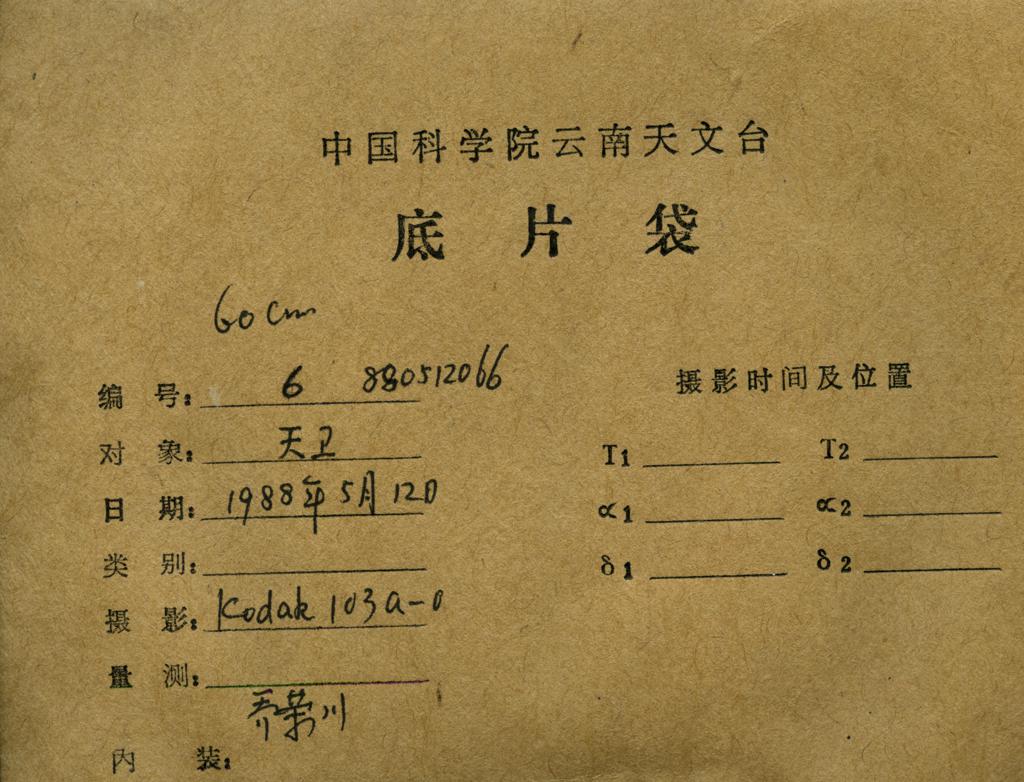 中国科学院云南天文台
底片袋
60cm
编号: 6 880512066
对象: 天卫
日期: 1988年5月12日
类别:
摄影: Kodak 103a-O
量测:
乔荣川
内装:
摄影时间及位置
T1 T2
α1 α2
δ1 δ2